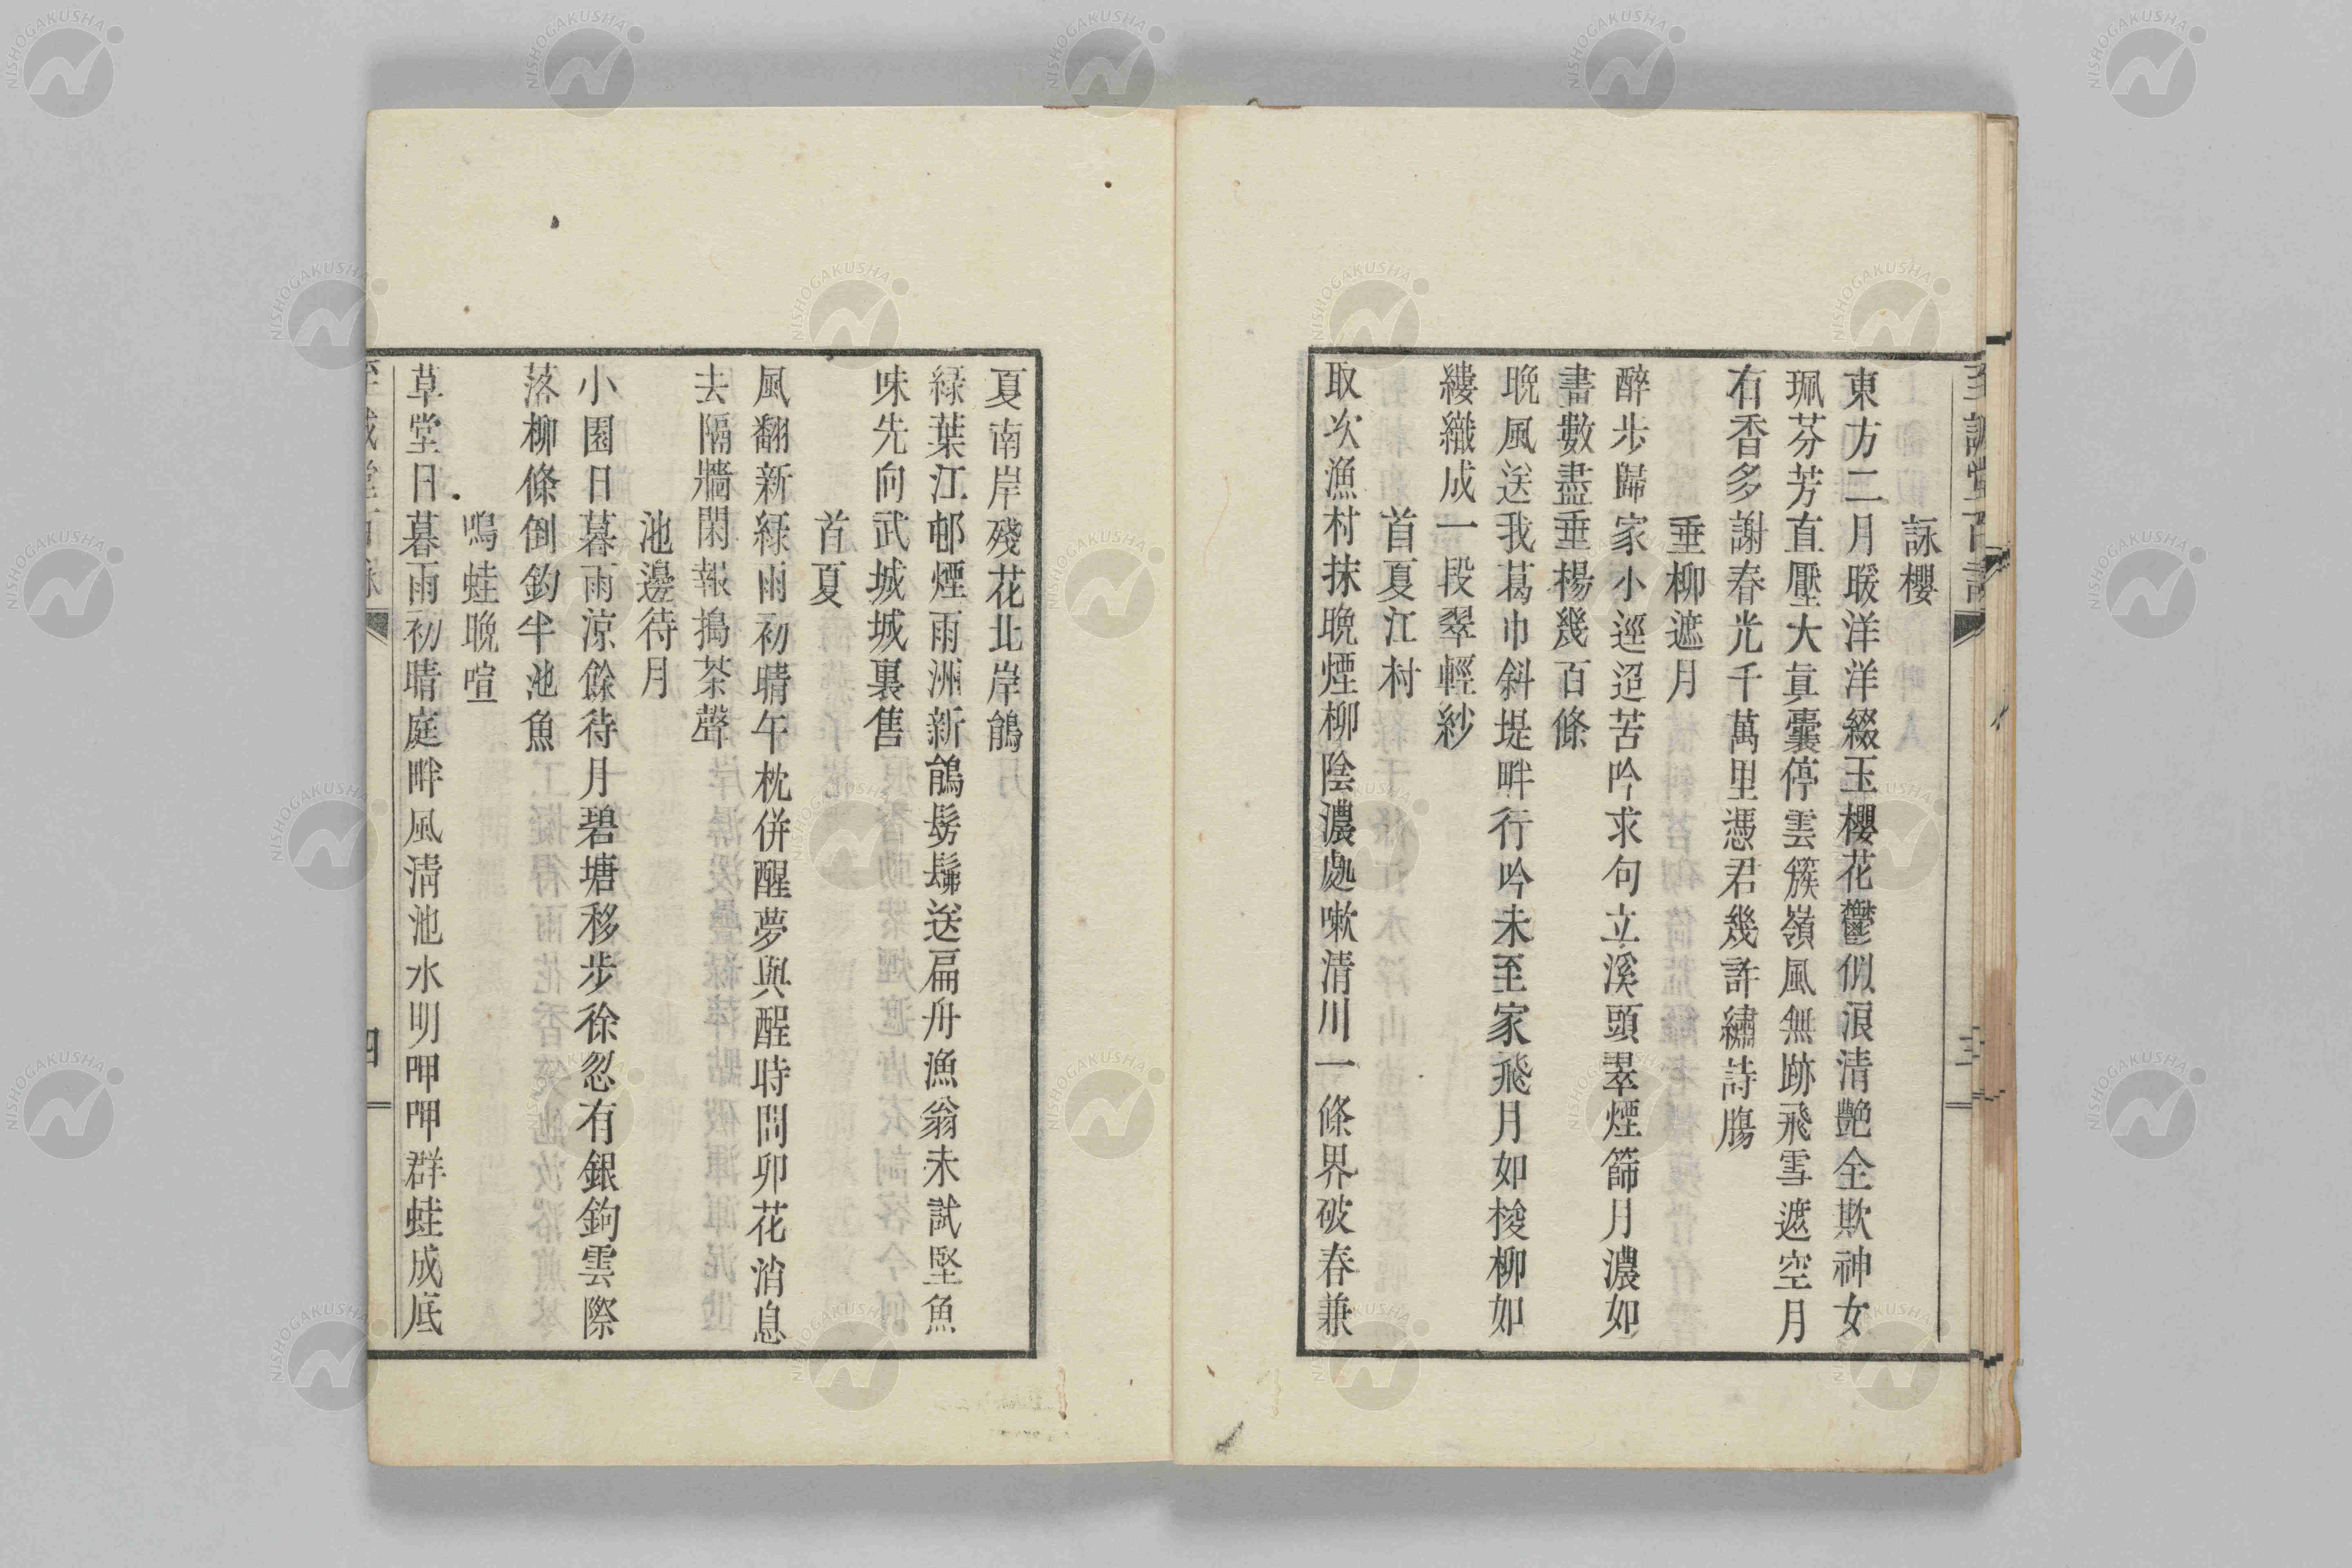 詠櫻
東方二月暖洋洋綴玉櫻花鬱似浪清艷全欺神女
珮芬芳直壓大眞囊停雲簇嶺風無跡飛雪遮空月
有香多謝春光千萬里憑君幾許繡詩膓
垂柳遮月
醉步歸家小逕迢苦吟求句立溪頭翠煙篩月濃如
書數盡垂楊幾百條
晚風送我葛巾斜堤畔行吟未至家飛月如梭柳如
縷織成一段翠輕紗
首夏江村
取次漁村抹晚煙柳陰濃處嗽清川一條界破春兼
夏南岸殘花北岸鵑
綠葉江邨煙雨洲新鵑髣髴送扁舟漁翁未試堅魚
味先向武城城裏售
首夏
風翻新綠雨初晴午枕併醒夢與酲時問卯花消息
去隔牆閑報搗茶聲
池邊待月
小園日暮雨涼餘待月碧塘移步徐忽有銀鉤雲際
落柳條倒釣半池魚
鳴蛙晚喧
草堂日暮雨初晴庭畔風清池水明呷呷群蛙成底
四
NISHOGAKUSHA